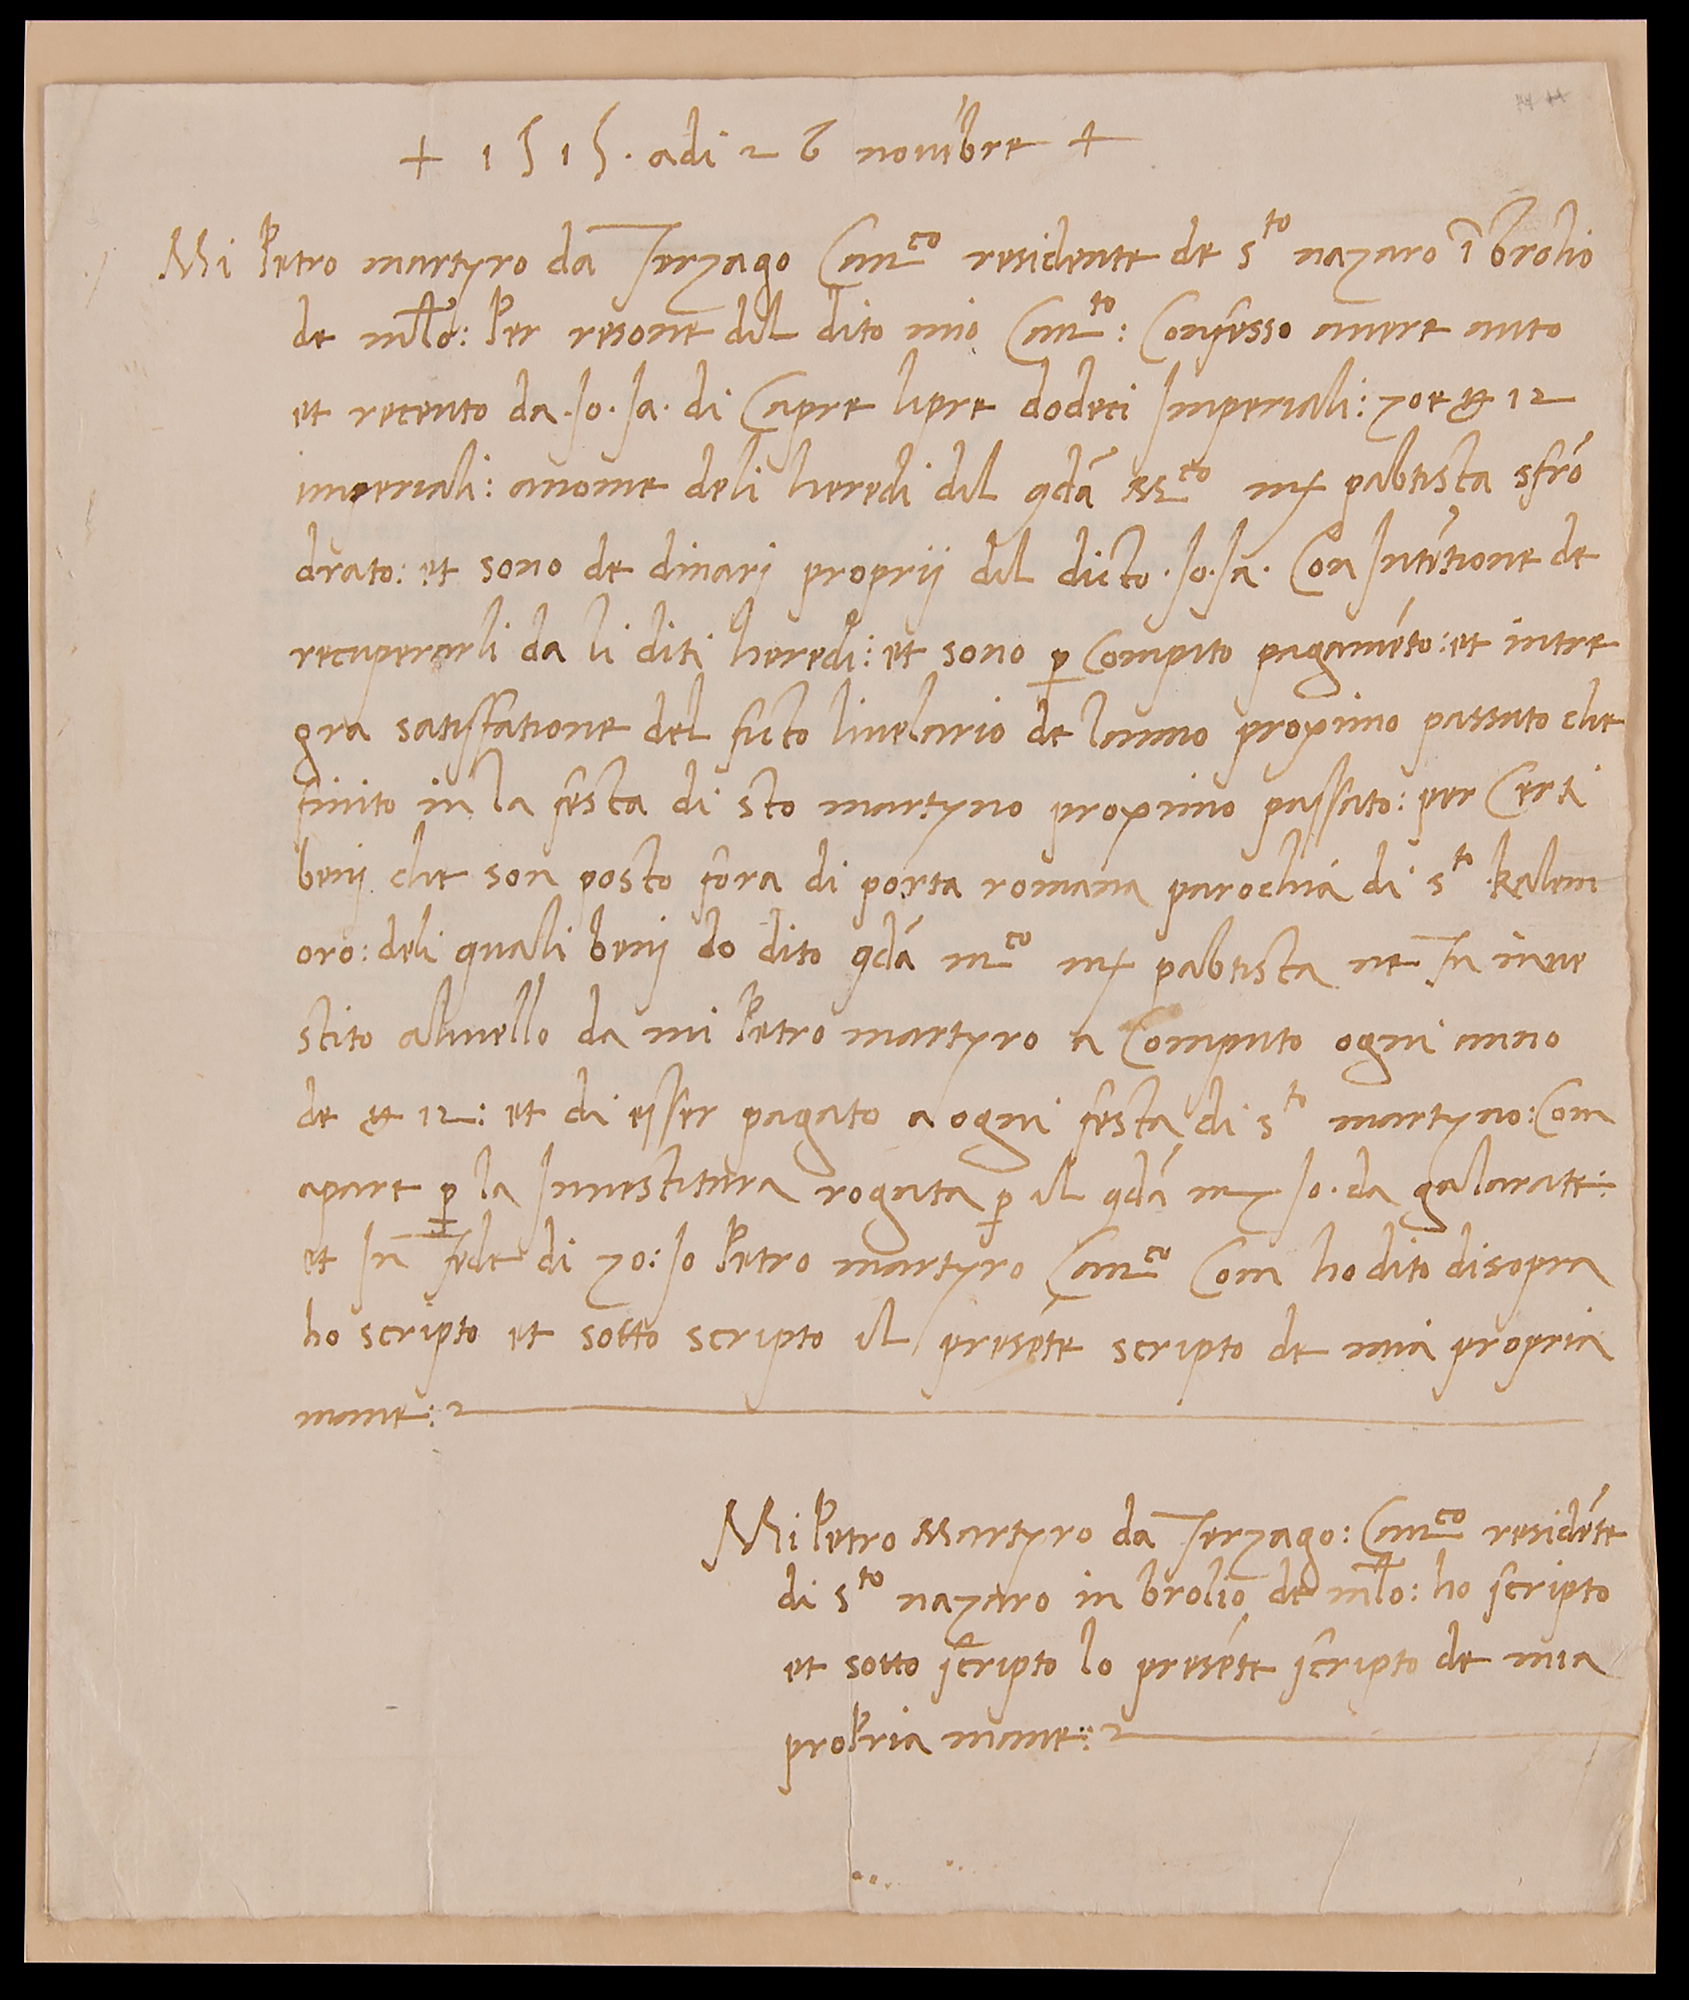 + 1515. adi 26 novẽbre +
Mi Petro martyro da Terzago Can^co residente de s^to nazaro ĩ brolio
de mll̃o: Per resone dil dito mio Can^to: Confesso avere auto
et receuto da .Jo. Ja. di Capre lipre dodeci Imperiali: zoe ℔ 12
imperiali: anome deli heredi dil qdã M^co mr pabtista sfrõ
drato: et sono de dinari proprij dil dicto .Jo. Ja. Con Intẽtione de
recuperarli da li diti heredi: et sono p̱ Computo pagamẽto: et inte
gra satisfatione del ficto livelario de lanno proximo passato che
finito in la festa di sto martyno proximo passato: per Certi
benij che son posto fora di porta romana parochia di s^to kalem
oro: deli quali benij do dito qdã m^co mr pabtista ne fu inve
stito alivello da mi Petro martyro a Computo ogni anno
de ℔ 12: et di esser pagato a ogni festa di s^to martyno: Com
apare p̱ la Investitura rogata p̱ il qdã mr Jo. da galarate:
et In fede di zo: Jo Petro martyro Can^co Com ho dito disopra
ho scripto et sotto scripto il presẽte scripto de mia propria
mane:
Mi Petro Martyro da Terzago: Can^co residẽte
di s^to nazaro in brolio de mll̃o: ho scripto
et sotto scripto lo presẽte scripto de mia
propria mane: